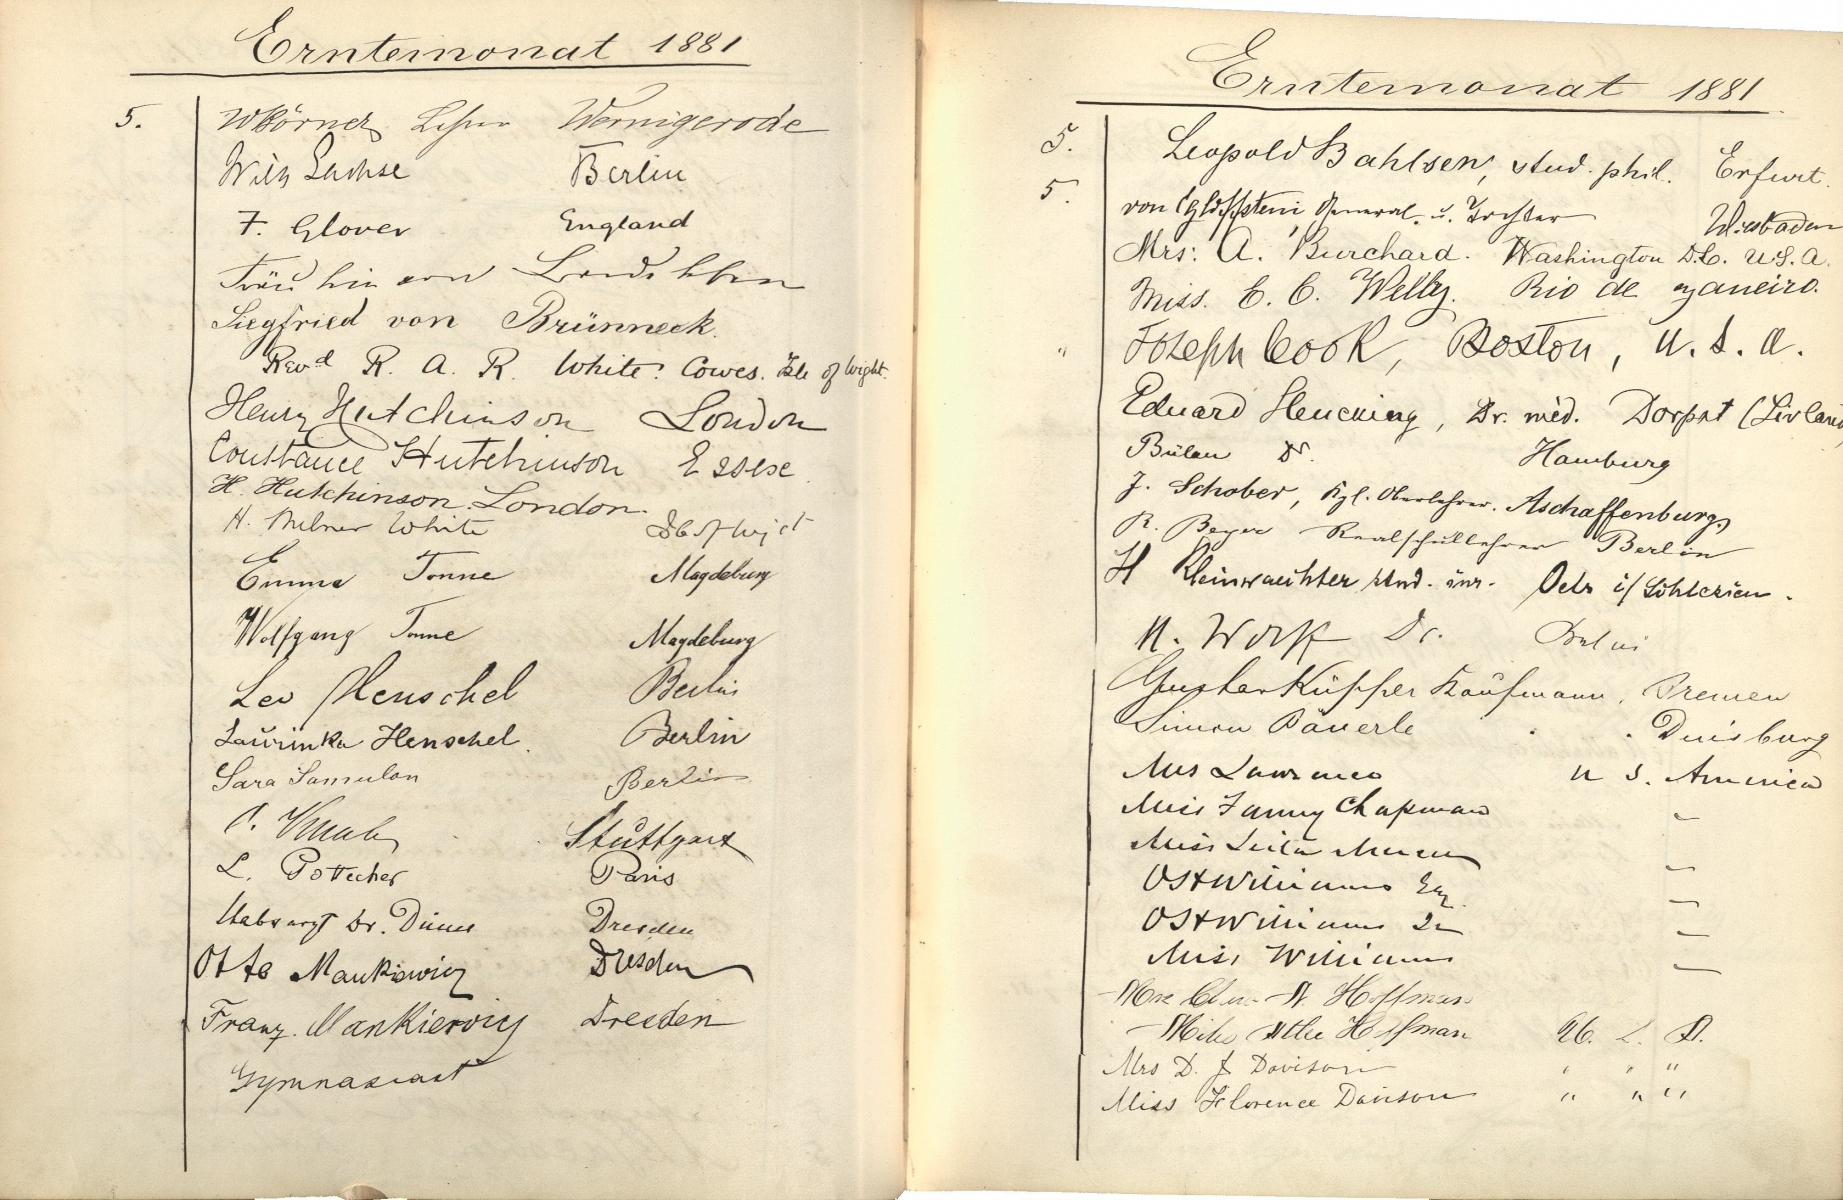 Erntemonat 1881
5. WKörner, Lehrer Wernigerode
Wilh Sachse Berlin
F. Glover England
von
Siegfried von Brünneck.
Revd R. A. R. White. Cowes. Isle of Wight.
Henry Hutchinson London
Constance Hutchinson Essex
H. Hutchinson. London.
H. Milner White I of Wight
Emma Tonne Magdeburg
Wolfgang Tonne Magdeburg
Leo Henschel Berlin
Laurinka Henschel. Berlin
Sara Samulon Berlin
Stuttgart
L. Pottecher Paris
Stabsarzt Dr. Dresden
Otto Mankiewicz Dresden
Franz. Mankiewicz Dresden
Gymnasiast
Erntemonat 1881
5. Leopold Bahlsen, stud. phil. Erfurt.
5. von Egloffstein, General. u. Tochter Wiesbaden
Mrs: A. Burchard. Washington D.C. U.S.A.
Miss. E. C. Welby. Rio de Janeiro.
" Joseph Cook, Boston, U.S.A.
Eduard Heucking, Dr. med. Dorpat (Livland)
Bülau Dr. Hamburg
J. Schober, Kgl. Oberlehrer. Aschaffenburg
R. Beyer Realschullehrer Berlin
H Kleinwaechter stud. iur. Oels i/ Schlesien.
Dr. Berlin
Gustav Küpper Kaufmann, Bremen
Simon Bäuerle " " Duisburg
Mrs Lawrence U S. America
Miss Fanny Chapman "
Miss Leila "
OStWilliams Esq. "
OStWilliams Jr "
Miss Williams "
Hoffman
Hoffman U. S. A.
Mrs D. J Davison " " "
Miss Florence Davison " " "